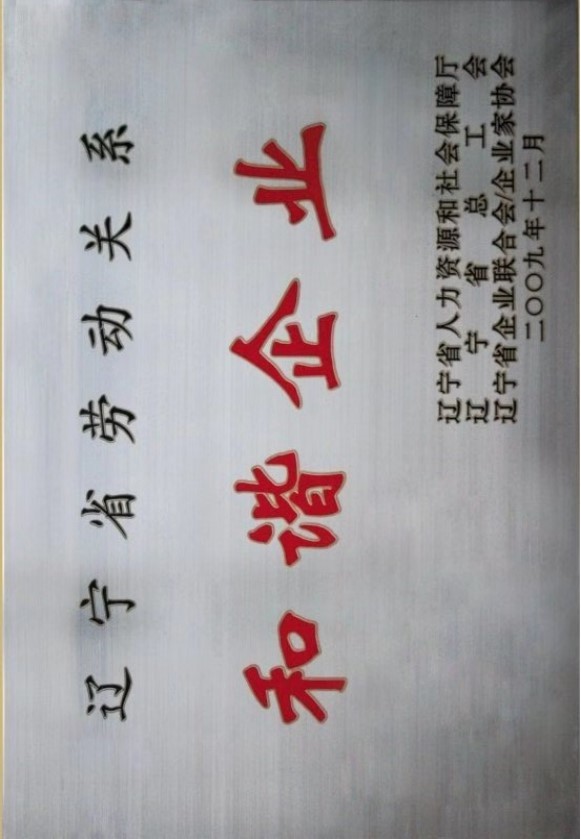 辽宁省劳动关系
和谐企业
辽宁省人力资源和社会保障厅
辽宁省总工会
辽宁省企业联合会/企业家协会
二〇〇九年十二月